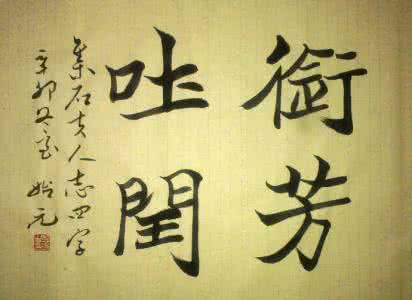 銜芳
吐閏
集石夫人志四字
辛卯冬 始元